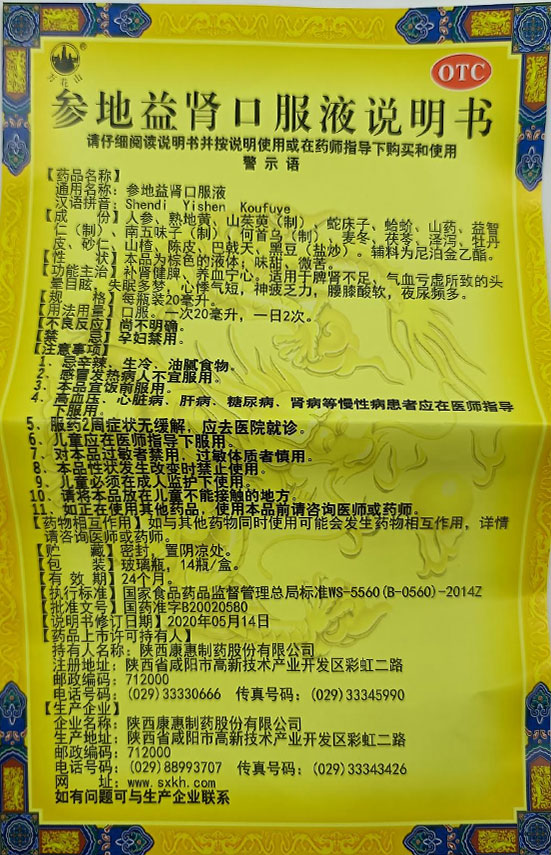 万花山®
OTC
参地益肾口服液说明书
请仔细阅读说明书并按说明使用或在药师指导下购买和使用
警示语
【药品名称】
通用名称：参地益肾口服液
汉语拼音：Shendi Yishen Koufuye
【成 份】人参、熟地黄、山茱萸（制）、蛇床子、蛤蚧、山药、益智
仁（制）、南五味子（制）、何首乌（制）、麦冬、茯苓、泽泻、牡丹
皮、砂仁、山楂、陈皮、巴戟天、黑豆（盐炒）。辅料为尼泊金乙酯。
【性 状】本品为棕色的液体；味甜、微苦。
【功能主治】补肾健脾、养血宁心。适用于脾肾不足，气血亏虚所致的头
晕目眩，失眠多梦，心悸气短，神疲乏力，腰膝酸软，夜尿频多。
【规 格】每瓶装20毫升。
【用法用量】口服。一次20毫升，一日2次。
【不良反应】尚不明确。
【禁 忌】孕妇禁用。
【注意事项】
1、忌辛辣、生冷、油腻食物。
2、感冒发热病人不宜服用。
3、本品宜饭前服用。
4、高血压、心脏病、肝病、糖尿病、肾病等慢性病患者应在医师指导
下服用。
5、服药2周症状无缓解，应去医院就诊。
6、儿童应在医师指导下服用。
7、对本品过敏者禁用，过敏体质者慎用。
8、本品性状发生改变时禁止使用。
9、儿童必须在成人监护下使用。
10、请将本品放在儿童不能接触的地方。
11、如正在使用其他药品，使用本品前请咨询医师或药师。
【药物相互作用】如与其他药物同时使用可能会发生药物相互作用，详情
请咨询医师或药师。
【贮 藏】密封，置阴凉处。
【包 装】玻璃瓶，14瓶/盒。
【有 效 期】24个月。
【执行标准】国家食品药品监督管理总局标准WS-5560(B-0560)-2014Z
【批准文号】国药准字B20020580
【说明书修订日期】2020年05月14日
【药品上市许可持有人】
持有人名称：陕西康惠制药股份有限公司
注册地址：陕西省咸阳市高新技术产业开发区彩虹二路
邮政编码：712000
电话号码：(029)33330666 传真号码：(029)33345990
【生产企业】
企业名称：陕西康惠制药股份有限公司
生产地址：陕西省咸阳市高新技术产业开发区彩虹二路
邮政编码：712000
电话号码：(029)88993707 传真号码：(029)33343426
网 址：www.sxkh.com
如有问题可与生产企业联系